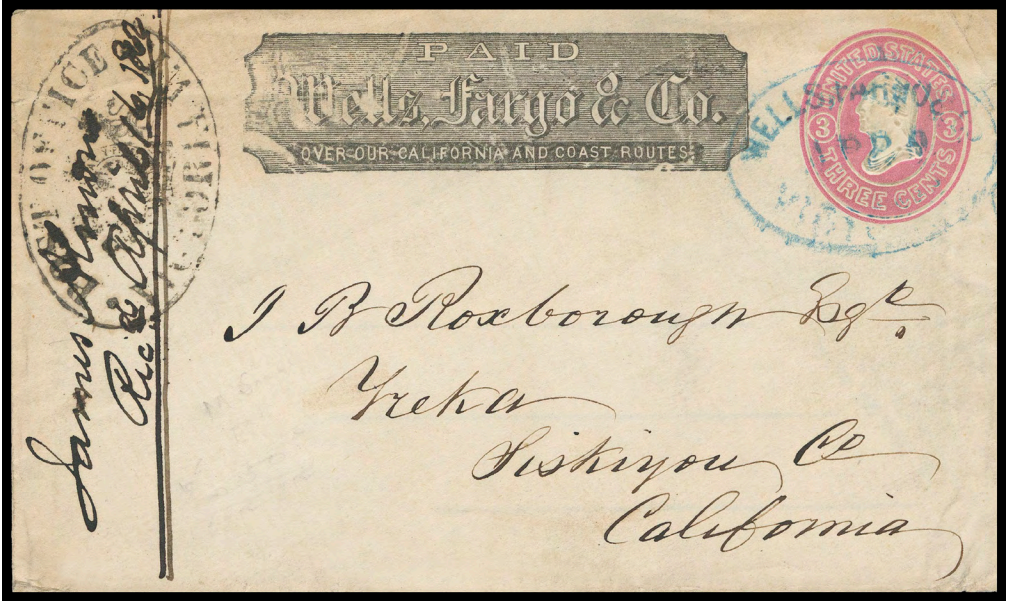 PAID
Wells, Fargo & Co.
OVER OUR CALIFORNIA AND COAST ROUTES.
UNITED STATES
3 3
THREE CENTS
WELLS, FARGO
POST OFFICE
James
Rec'd April 16
J B Roxborough Esqr.
Yreka
Siskiyou Co
California